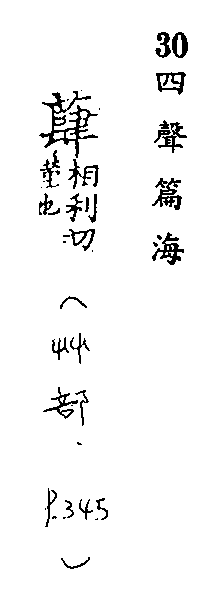 30 四聲篇海
相利切
也
（艸部．P.345）